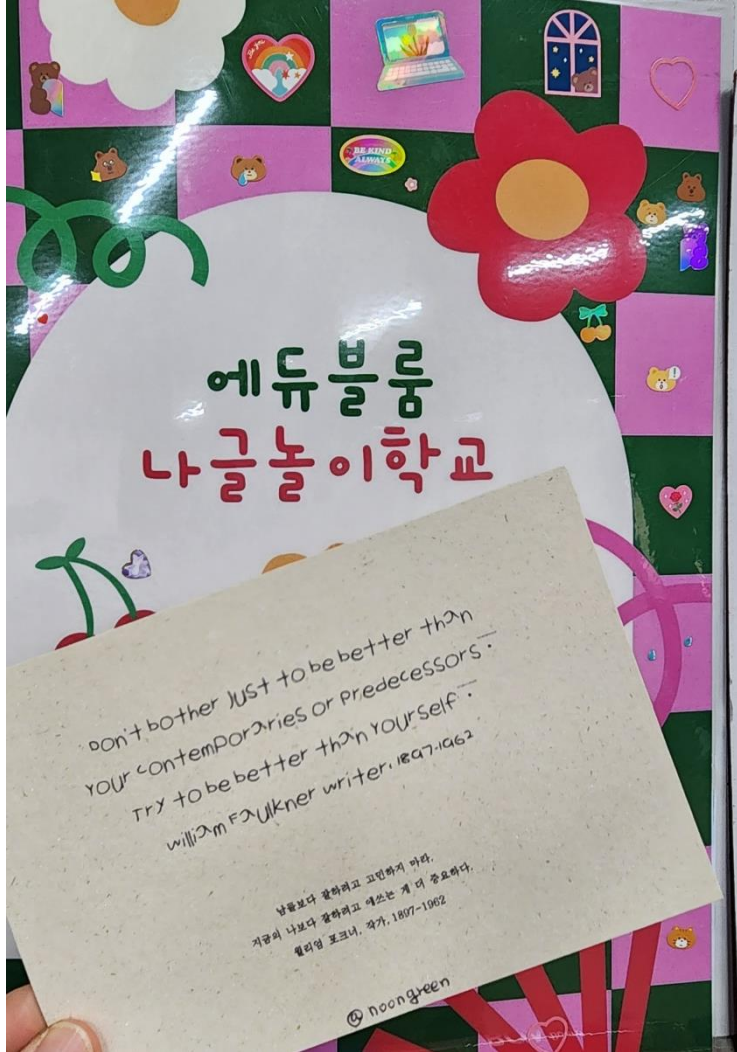 BE KIND
ALWAYS
에듀블룸
나글놀이학교
Don't bother Just to be better than
your contemporaries or predecessors.
Try to be better than yourself.
William Faulkner writer, 1897-1962
남들보다 잘하려고 고민하지 마라.
지금의 나보다 잘하려고 애쓰는 게 더 중요하다.
윌리엄 포크너, 작가, 1897-1962
@noongreen